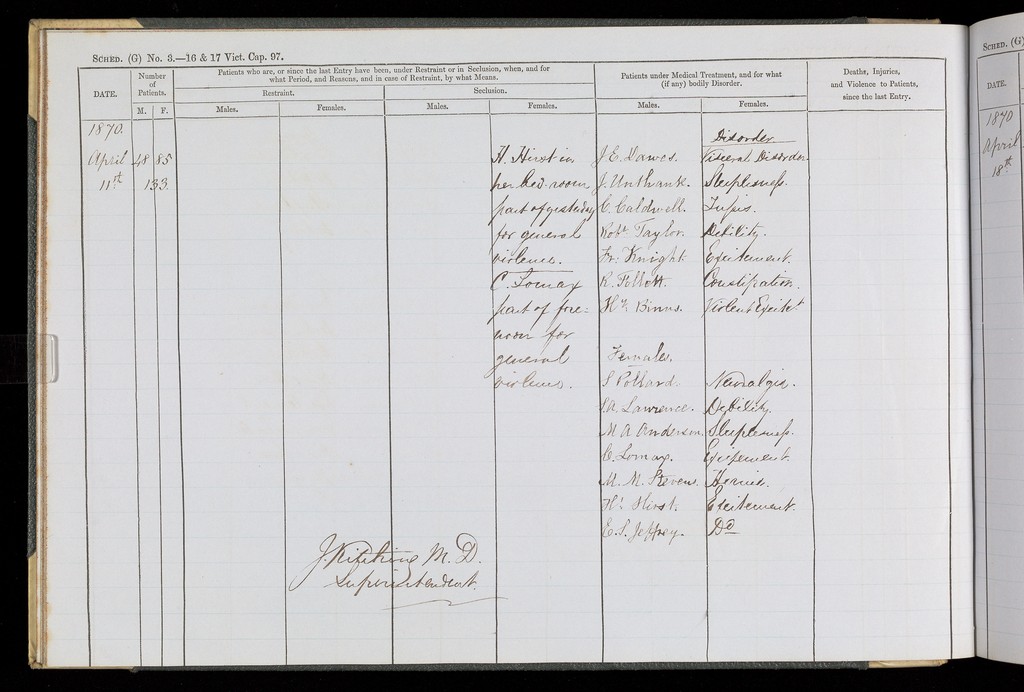 SCHED. (G) No. 3.—16 & 17 Vict. Cap. 97.
DATE.
Number of Patients.
M. F.
Patients who are, or since the last Entry have been, under Restraint or in Seclusion, when, and for
what Period, and Reasons, and in case of Restraint, by what Means.
Restraint.
Seclusion.
Males. Females. Males. Females.
Patients under Medical Treatment, and for what
(if any) bodily Disorder.
Males. Females.
Deaths, Injuries,
and Violence to Patients,
since the last Entry.
1870.
April 48 85
11st 133
H. Hirst in
her bed-room
part of yesterday
for general
violence.
C. Lomax
part of fore-
noon for
general
violence.
Disorder
J. E. Dawes. Visceral Disorder
J. Unthank. Sleeplessness.
C. Caldwell. Lupis.
Robt. Taylor. Debility.
Fr. Knight Excitement.
R. Follott. Constipation.
Hy. Binns. Violent Excitet
Females.
S Pollard. Neuralgia.
S.A. Lawrence. Debility.
M A Anderson. Sleeplessness.
C. Lomax. Excitement.
M. M. Stevens. Hernia.
Ht Hirst. Excitement.
E. S. Jeffrey. Do
J. Kitching M. D.
Superintendent.
SCHED. (G)
DATE.
1870
April
18th